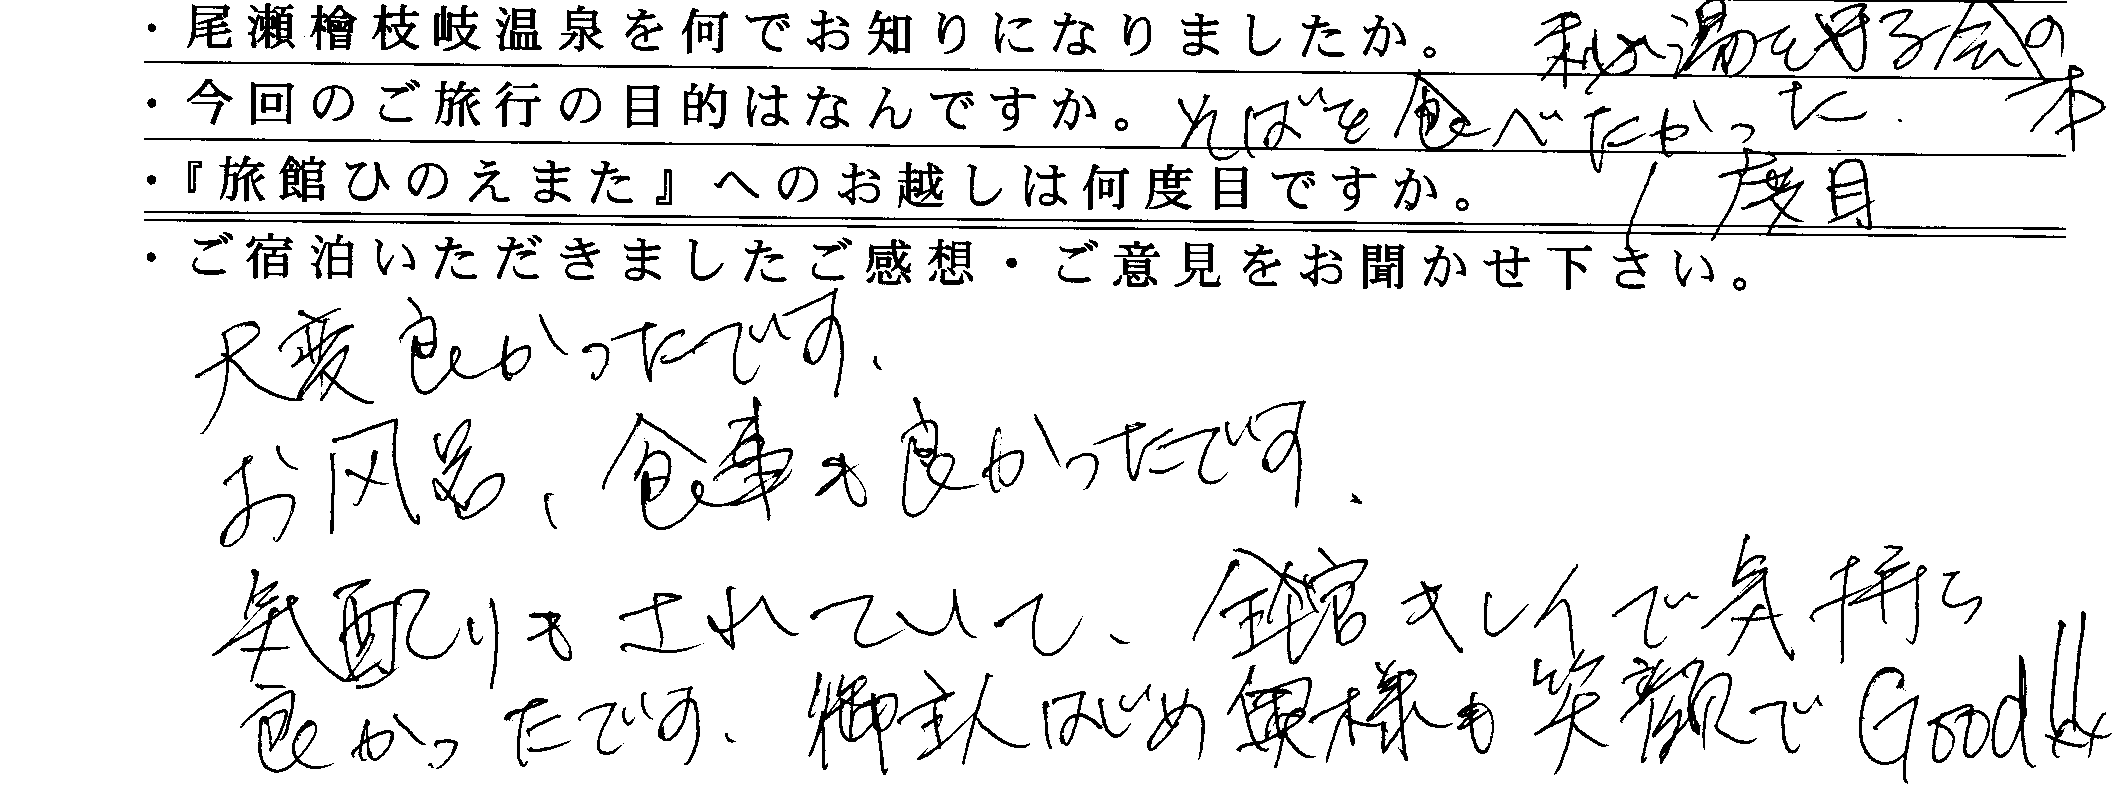 ・尾瀬檜枝岐温泉を何でお知りになりましたか。 秘湯を守る会の本
・今回のご旅行の目的はなんですか。そばを食べたかった.
・『旅館ひのえまた』へのお越しは何度目ですか。 1度目
・ご宿泊いただきましたご感想・ご意見をお聞かせ下さい。
大変良かったです、
お风呂、食事も良かったです、
気配りもされていて、全館キレイで気持ち
良かったです、御主人はじめ奥様も笑顔でGood!!